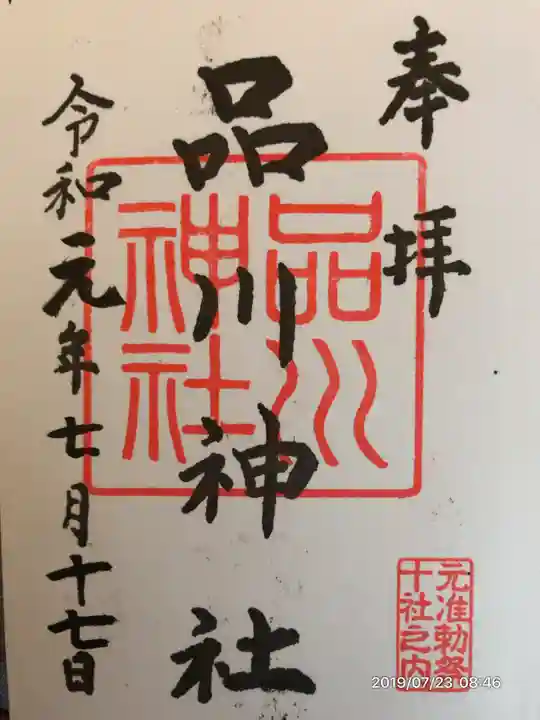 奉拝
品川神社
令和元年七月十七日
品川
神社
元准勅祭
十社之内
2019/07/23 08:46